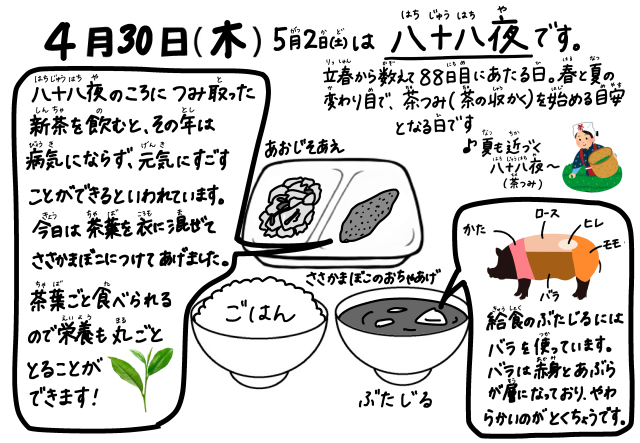 4月30日(木) 5月2日(土)は 八十八夜です。
立春から数えて88日目にあたる日。春と夏の
変わり目で、茶つみ(茶の収かく)を始める目安
となる日です
♪夏も近づく
八十八夜～
(茶つみ)
八十八夜のころにつみ取った
新茶を飲むと、その年は
病気にならず、元気にすごす
ことができるといわれています。
今日は茶葉を衣に混ぜて
ささかまぼこにつけてあげました。
茶葉ごと食べられる
ので栄養も丸ごと
とることが
できます!
あおじそあえ
ささかまぼこのおちゃあげ
ごはん
ぶたじる
かた
ロース
ヒレ
モモ
バラ
給食のぶたじるには
バラを使っています。
バラは赤身とあぶら
が層になっており、やわ
らかいのがとくちょうです。